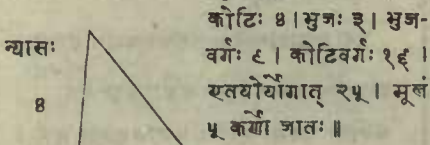 न्यासः
४
कोटिः ४ । भुजः ३ । भुज-
वर्गः ९ । कोटिवर्गः १६ ।
एतयोर्योगात् २५ । मूलं
५ कर्णो जातः ॥